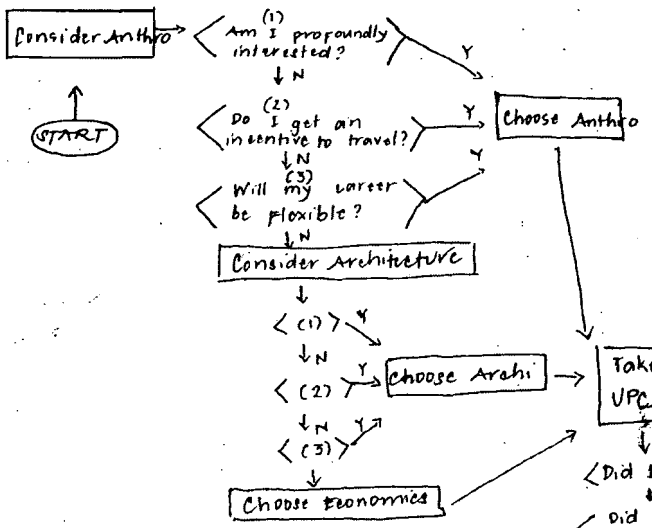 Consider Anthro
(1)
Am I profoundly
interested?
Y
N
START
(2)
Do I get an
incentive to travel?
Y
Choose Anthro
N
(3)
Will my career
be flexible?
Y
N
Consider Architecture
(1)
Y
N
(2)
Y
Choose Archi
N
(3)
Y
Choose Economics
Tak
UPC
Did
Did